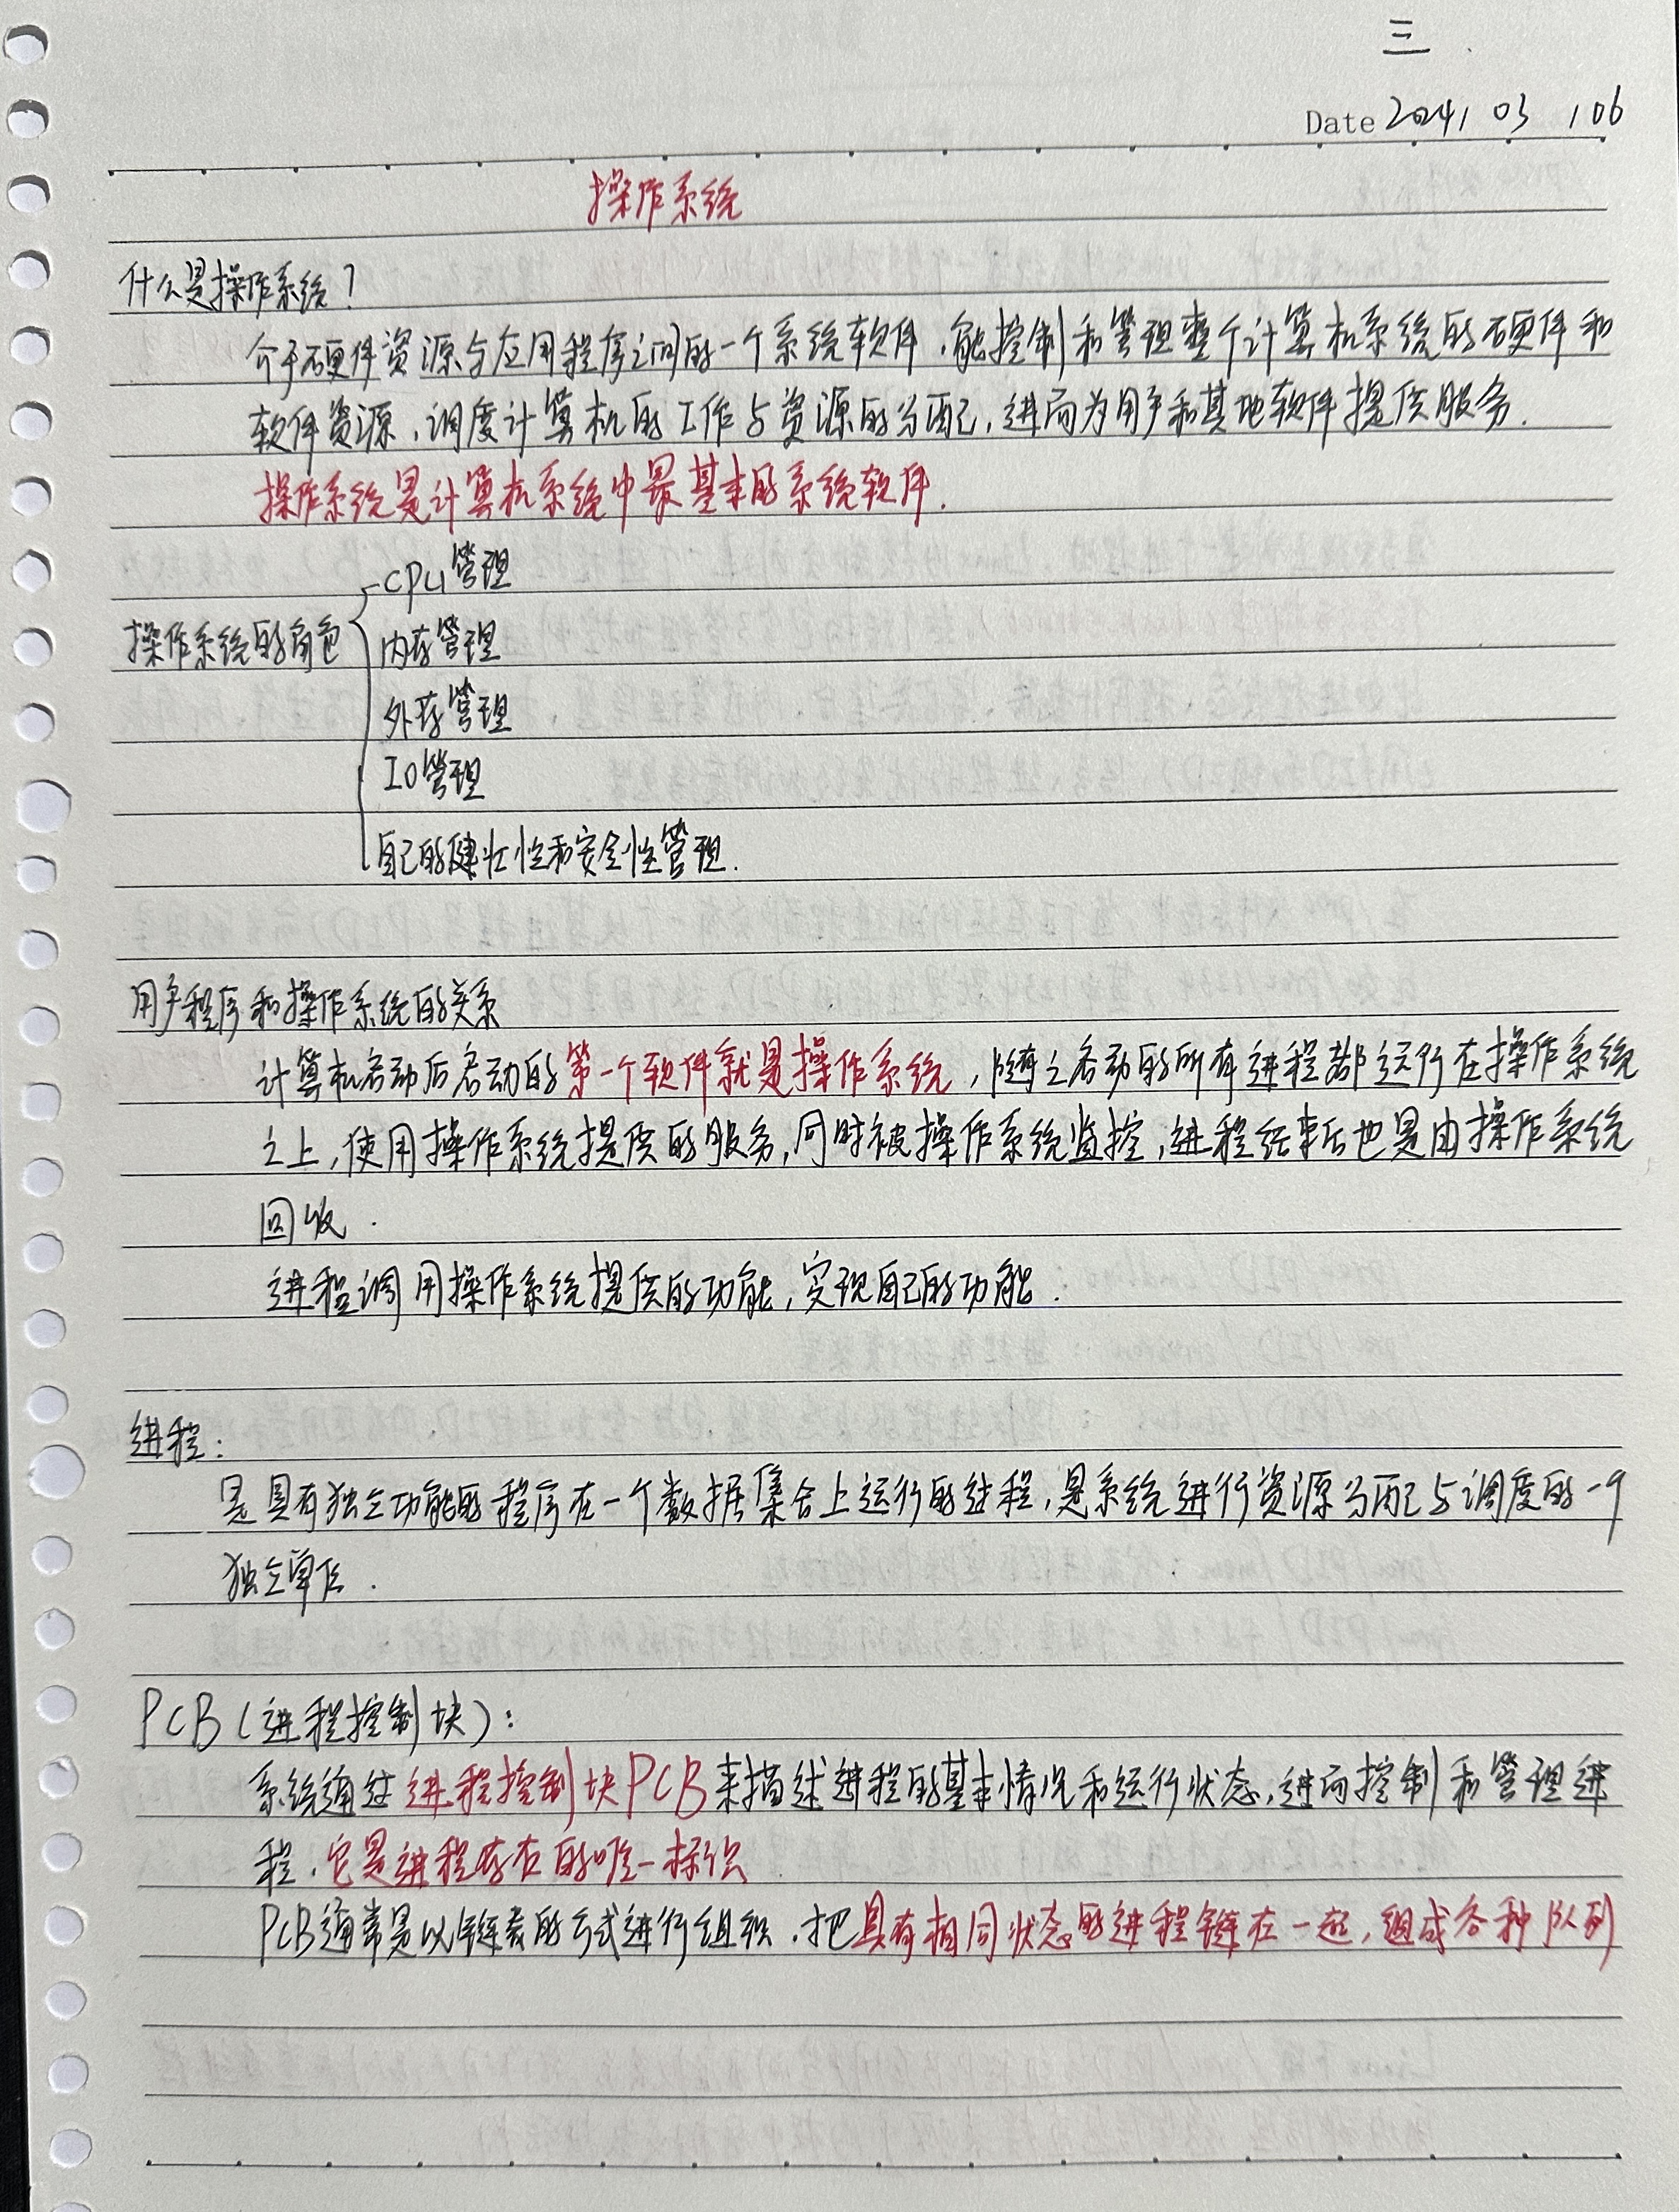 三
Date 2024/ 03 / 06
操作系统
什么是操作系统?
介于硬件资源与应用程序之间的一个系统软件,能控制和管理整个计算机系统的硬件和
软件资源,调度计算机的工作与资源的分配,进而为用户和其他软件提供服务.
操作系统是计算机系统中最基本的系统软件.
CPU管理
操作系统的角色
内存管理
外存管理
IO管理
自己的健壮性和安全性管理.
用户程序和操作系统的关系
计算机启动后启动的第一个软件就是操作系统,随之启动的所有进程都运行在操作系统
之上,使用操作系统提供的服务,同时被操作系统监控,进程结束后也是由操作系统
回收.
进程调用操作系统提供的功能,实现自己的功能.
进程:
是具有独立功能的程序在一个数据集合上运行的过程,是系统进行资源分配与调度的一个
独立单位.
PCB(进程控制块):
系统通过进程控制块PCB来描述进程的基本情况和运行状态,进而控制和管理进
程.它是进程存在的唯一标识
PCB通常是以链表的方式进行组织,把具有相同状态的进程链在一起,组成各种队列